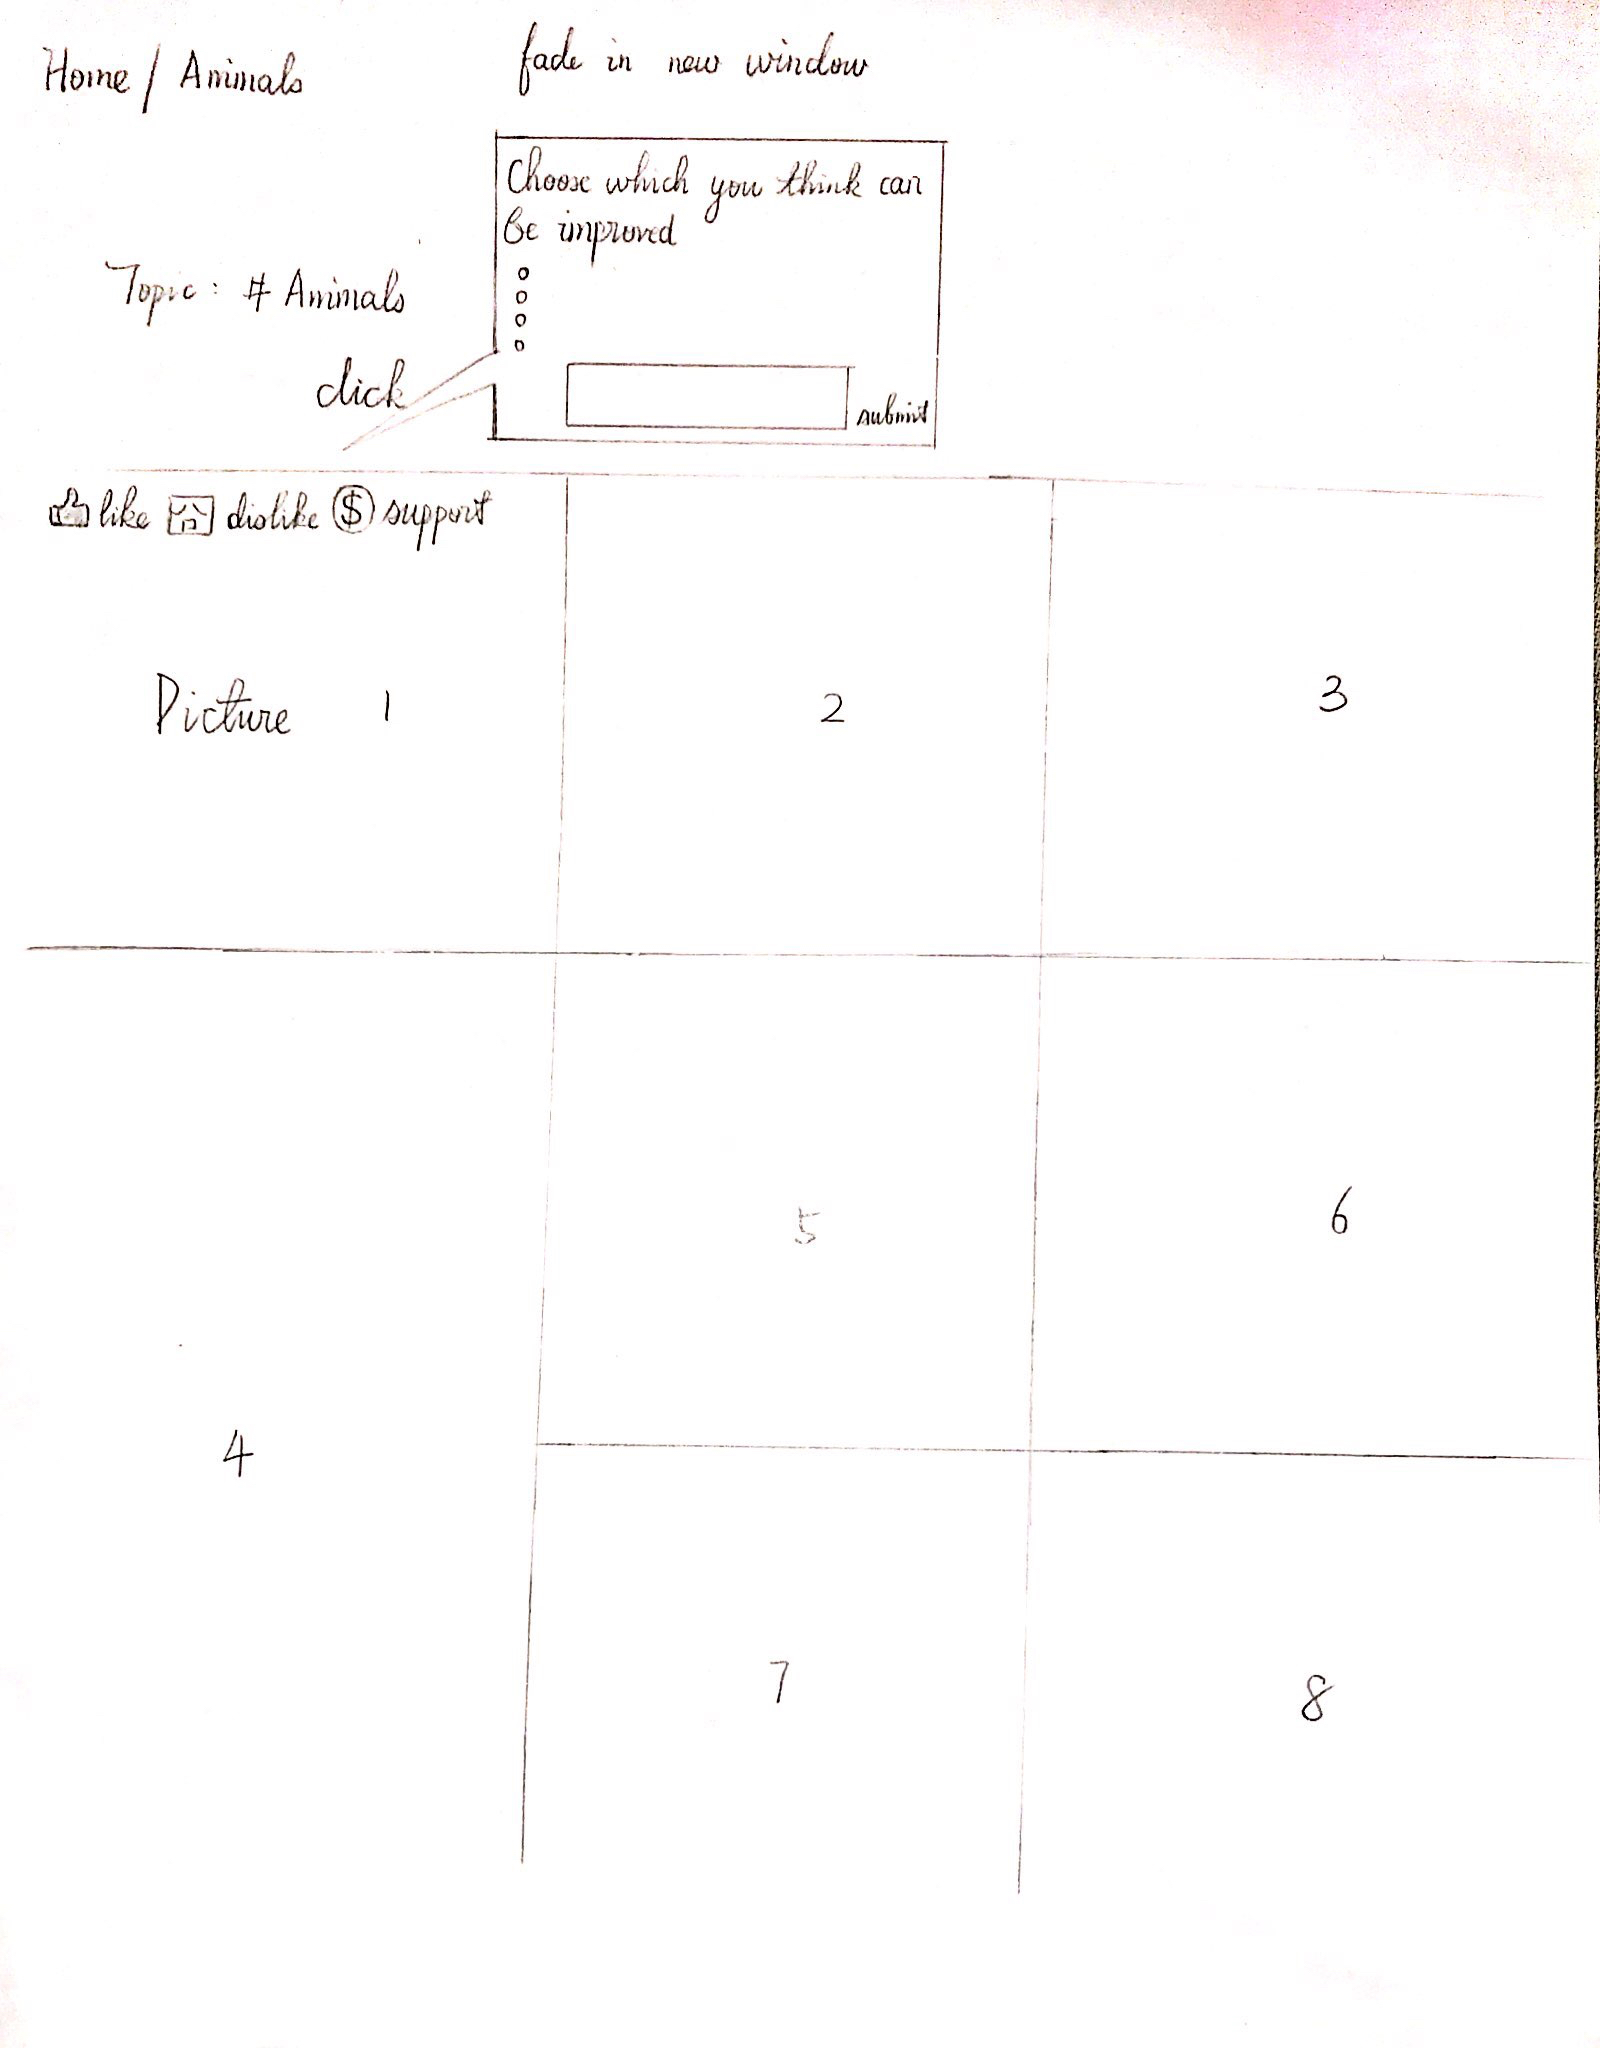 Home / Animals
fade in new window
Choose which you think can
be improved
Topic: # Animals
click
submit
like dislike $ support
Picture 1
2
3
4
5
6
7
8